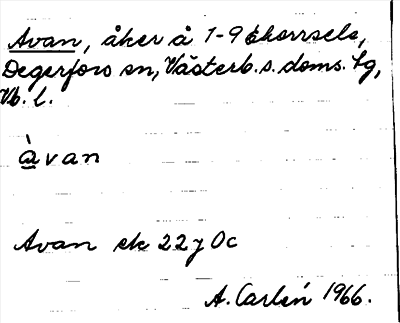 Avan, åker å 1-9 Ekorrsele,
Degerfors sn, Västerb. s. doms. lg,
Vb. l.
àvan
Avan ek 22 j 0c
A. Carlén 1966.